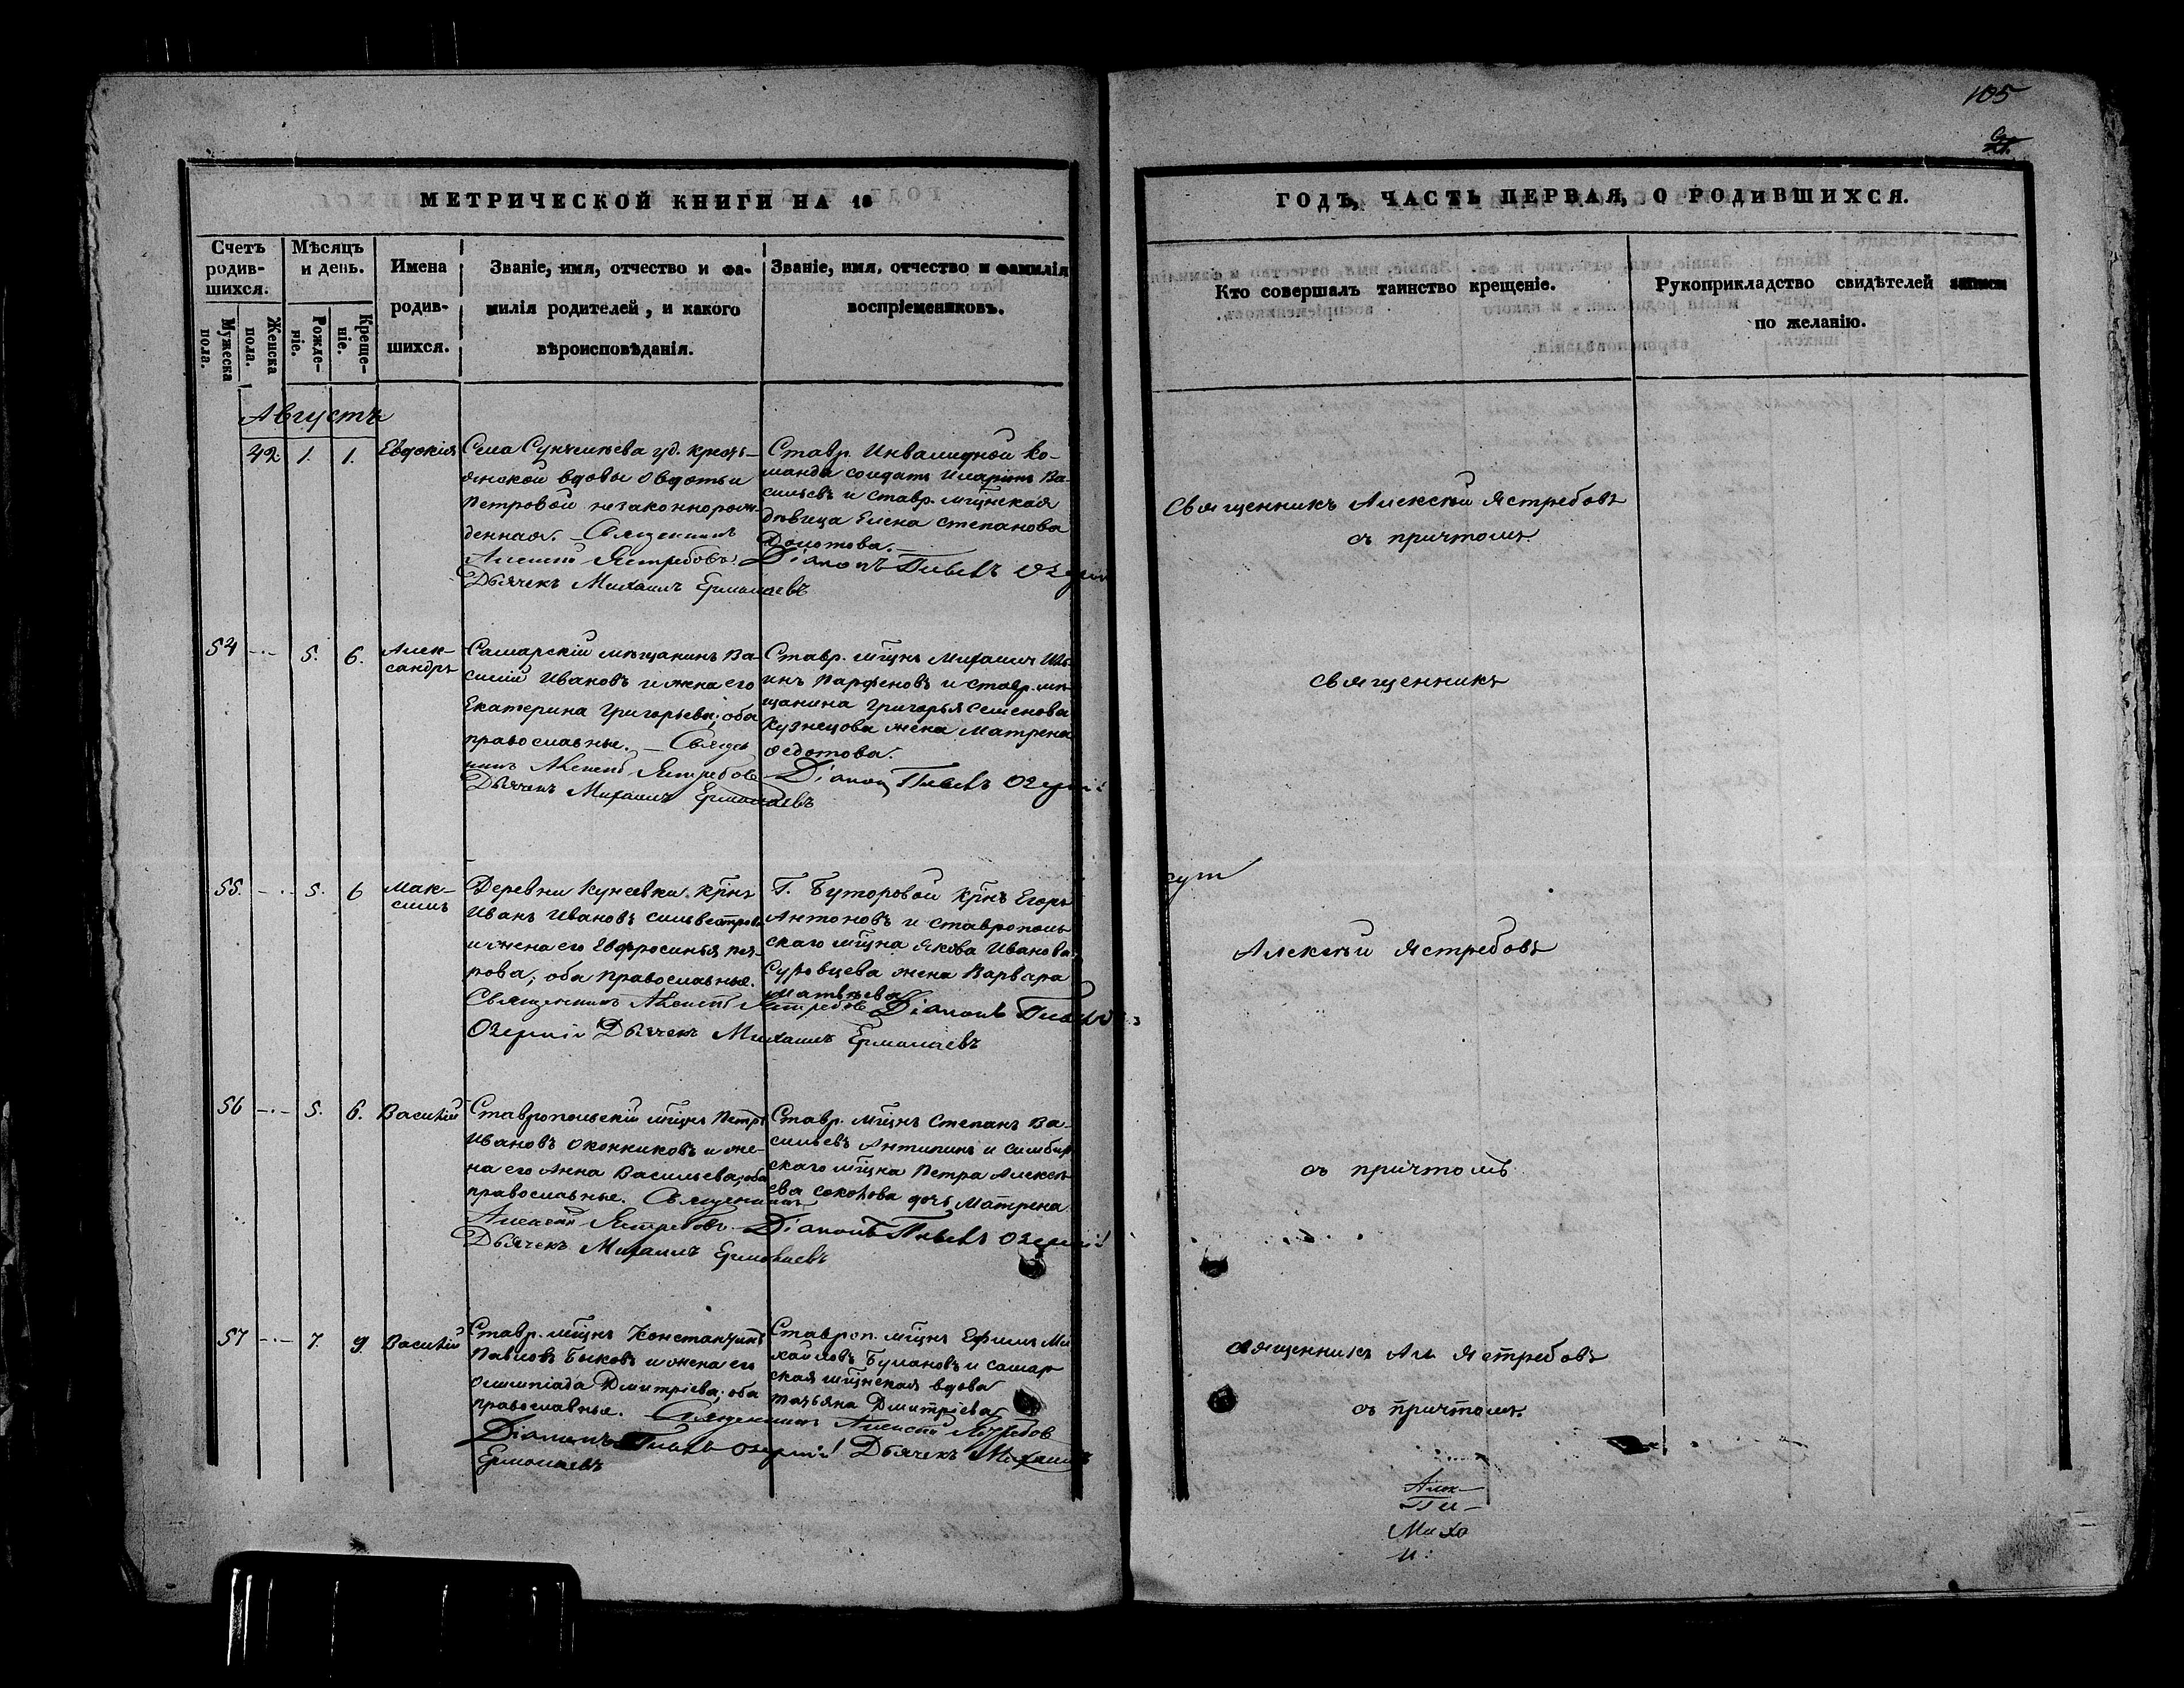 105
МЕТРИЧЕСКОЙ КНИГИ НА 18
ГОДЪ, ЧАСТЬ ПЕРВАЯ, О РОДИВШИХСЯ.
Счетъ родив-шихся.
Мужеска пола.
Женска пола.
Мѣсяцъ и день.
Рожде-ніе.
Креще-ніе.
Имена родив-шихся.
Званіе, имя, отчество и фа-
милія родителей, и какого
вѣроисповѣданія.
Званіе, имя, отчество и фамилія
воспріемниковъ.
Кто совершалъ таинство крещеніе.
Рукоприкладство свидѣтелей записи
по желанію.
Августъ
42 1. 1. Евдокія
Села Сунчилѣева уд. кресть-
янской вдовы Овдотьи
Петровой незаконнорож-
денная. – Священникъ
Алексій Ястребовъ.
Дьячекъ Михаилъ Ермолаевъ
Ставр. Инвалидной ко-
манды солдатъ Иларіонъ Ва-
сильевъ и ставр. мщнская
дѣвица Елена Степанова
Діаконъ Павелъ
Священникъ Алексѣй Ястребовъ
съ причтомъ.
54 -.- 5. 6. Алек-
сандръ
Самарскій мѣщанинъ Ва-
силій Ивановъ и жена его
Екатерина Григорьева; оба
православные. – Священ
никъ Алексѣй Ястребовъ
Дьячекъ Михаилъ Ермолаевъ
Ставр. мщнъ Михаилъ Иль-
инъ Парфеновъ и ставр. мѣ-
щанина Григорья Семенова
Кузнецова жена Матрена
Федотова.
Діаконъ Павелъ
священникъ
55. -.- 5. 6 Мак-
симъ
Деревни Кунеевки крнъ
Иванъ Ивановъ Сильвестровъ
и жена его Евфросинья Пет-
рова; оба православные.
Священникъ Алексѣй Ястребовъ Діаконъ Павелъ
Дьячекъ Михаилъ Ермолаевъ
Буторовой крнъ Егоръ
Антоновъ и ставрополь
скаго мщна Якова Иванова
Суровцева жена Варвара
Матвѣева
Алексѣй Ястребовъ
56 -.- 5. 6. Василій
Ставропольскій мщнъ Петръ
Ивановъ Оконниковъ и же-
на его Анна Васильева; оба
православные. Священникъ
Алексѣй Ястребовъ
Дьячекъ Михаилъ Ермолаевъ
Ставр. мщнъ Степанъ Ва-
сильевъ Антипинъ и симбир
скаго мщна Петра Алексѣ
ева Соколова дочь Матрена
Діаконъ Павелъ
съ причтомъ
57 -.- 7. 9 Василій
Ставр. мщнъ Константинъ
Павловъ Быковъ и жена его
Олимпіада Дмитріева; оба
православные. Священникъ Алексѣй Ястребовъ
Діаконъ Павелъ Дьячекъ Михаилъ
Ермолаевъ
Ставроп. мщнъ Ефимъ Ми
хайловъ Булановъ и самар
ская мщнская вдова
Татьяна Дмитріева
священникъ Ал. Ястребовъ
съ причтомъ.